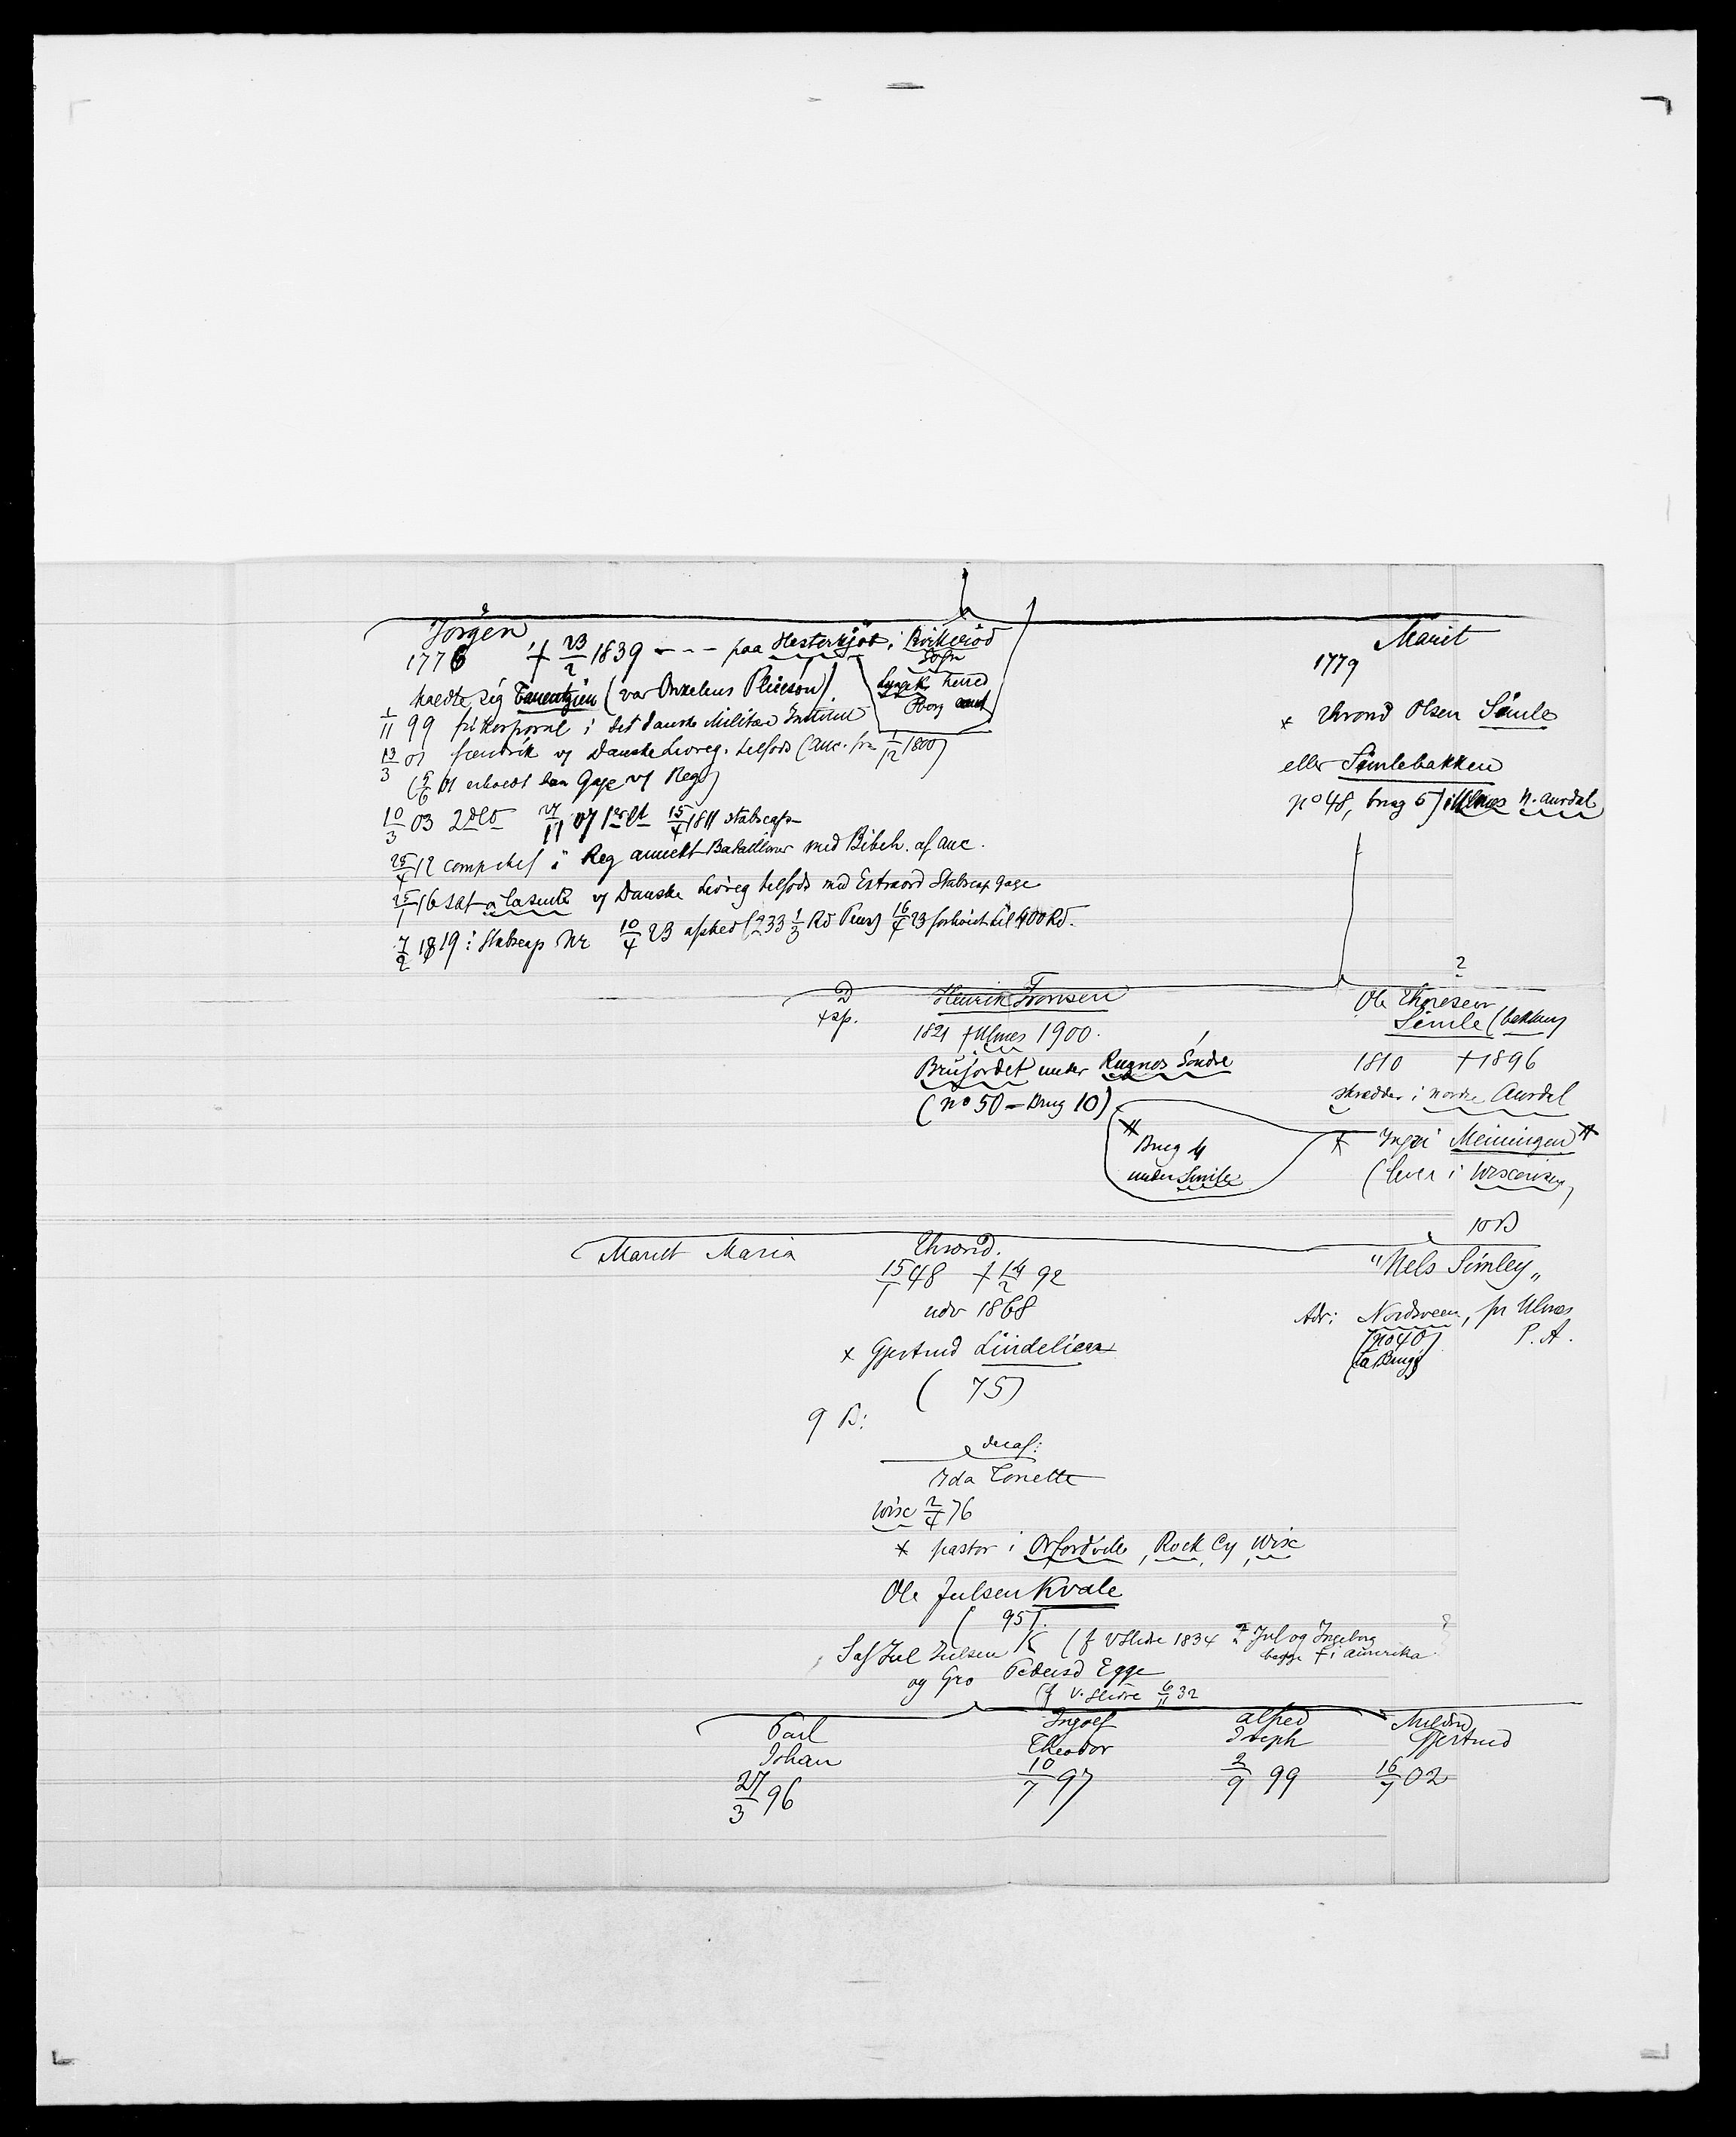 Jörgen
1776 † 23/2 1839 - - - paa Hesterkjöb i Birkeröd
Sogn
Lynge K herred
Fborg amt
kaldte sig Tauentzien (var Onkelens Pleiesön).
1/11 99 frikorporal i det danske Militære Institut
13/3 01 fændrik v/ Danske Livreg. tilfods (anc. fra 1/12 1800)
(5/6 01 erholdt han Gage v/ Regt)
10/3 03 2det 27/11 07 1ste Lt 15/4 1811 stabscap
25/4 12 comp chef i Reg annekt Batailloner med Bibeh. af anc.
15/1 16 sat à la suite v/ Danske Livreg tilfods med Extraord Stabscap gage
7/2 1819 : Stabscap Nr 10/4 23 afsked (233 1/3 Rd Pens) 16/4 23 forhöiet til 400 Rd.
Marit
1779
x Thrond Olsen Simle
eller Simlebakken
no 48, brug 5) i Ulnes N. Aurdal
D
†sp.
Henrik Tronsen
1821 † Ulnes 1900.
Brujordet under Rugnos Söndre
(no 50 - Brug 10)
2
Ole Thoresen
Simle (bakken)
1810 † 1896
skrædder i nordre Aurdal
x Ingri Meiningen #
(lever i Wisconsin)
# Brug 4
under Simle
10 B
Marit Maria
Thrond.
15/1 48 † 14/2 92
udv 1868
x Gjertrud Lindelien
( 75)
9 B:
deraf:
Ida Tonette
Wisc 2/4 76
x pastor i Orfordville, Rock Cy, Wisc
Ole Julsen Kvale
( 95).
S af Jul Julsen K (f V Slidre 1834 S af Jul og Ingeborg
begge † i Amerika
og Gro Pedersd Egge
(f V. Slidre 6/11 32
"Nels Simley"
Adr: Nordveen, pr Ulnes
(no 40) P. A.
(a Brug)
Paul
Johan
27/3 96
Ingolf
Theodor
10/7 97
Alfred
Joseph
2/9 99
Mildrid
Gjertrud
16/7 02